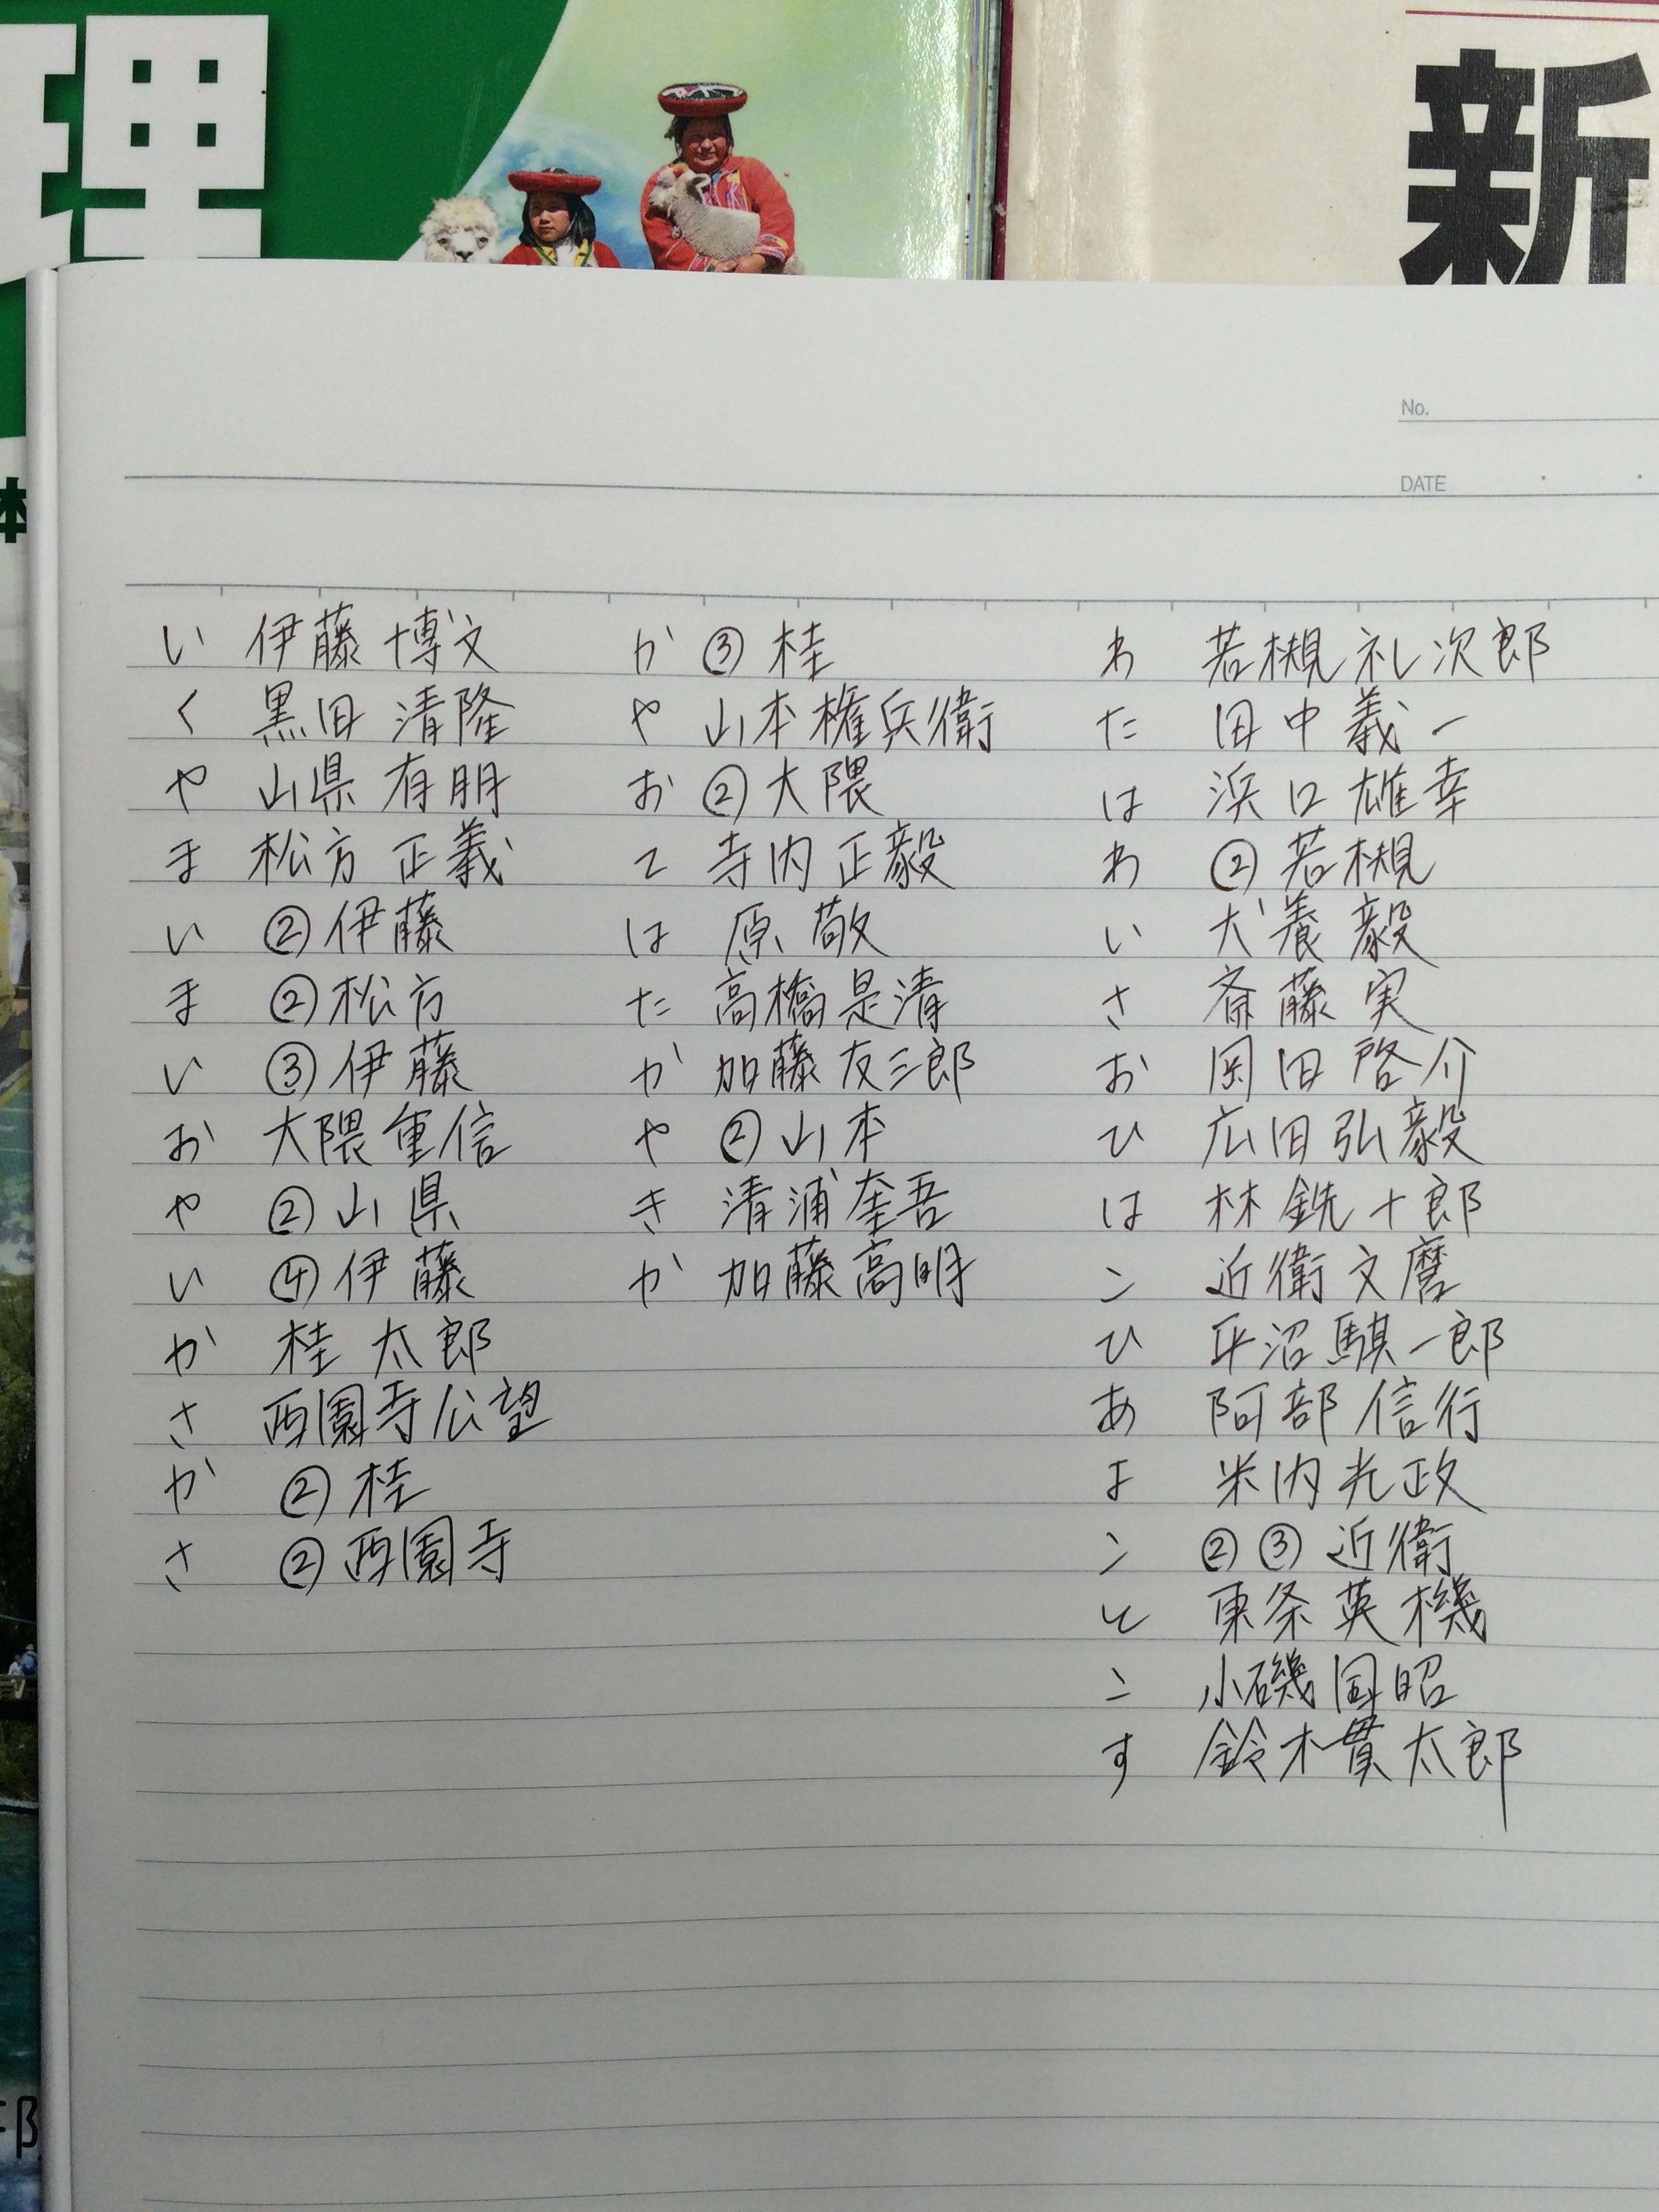 理
新
No.
DATE
い 伊藤博文
く 黒田清隆
や 山県有朋
ま 松方正義
い ②伊藤
ま ②松方
い ③伊藤
お 大隈重信
や ②山県
い ④伊藤
か 桂太郎
さ 西園寺公望
か ②桂
さ ②西園寺
か ③桂
や 山本権兵衛
お ②大隈
て 寺内正毅
は 原敬
た 高橋是清
か 加藤友三郎
や ②山本
き 清浦奎吾
か 加藤高明
わ 若槻礼次郎
た 田中義一
は 浜口雄幸
わ ②若槻
い 犬養毅
さ 斎藤実
お 岡田啓介
ひ 広田弘毅
は 林銑十郎
こ 近衛文麿
ひ 平沼騏一郎
あ 阿部信行
よ 米内光政
こ ②③近衛
と 東条英機
こ 小磯国昭
す 鈴木貫太郎